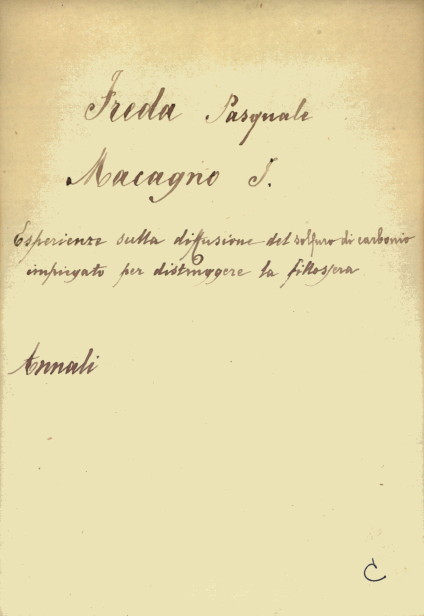 Freda Pasquale
Macagno I.
Esperienze sulla diffusione del solfuro di carbonio
impiegato per distruggere la fillossera
Annali
C